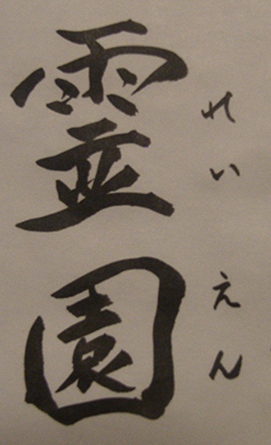 霊園
れいえん